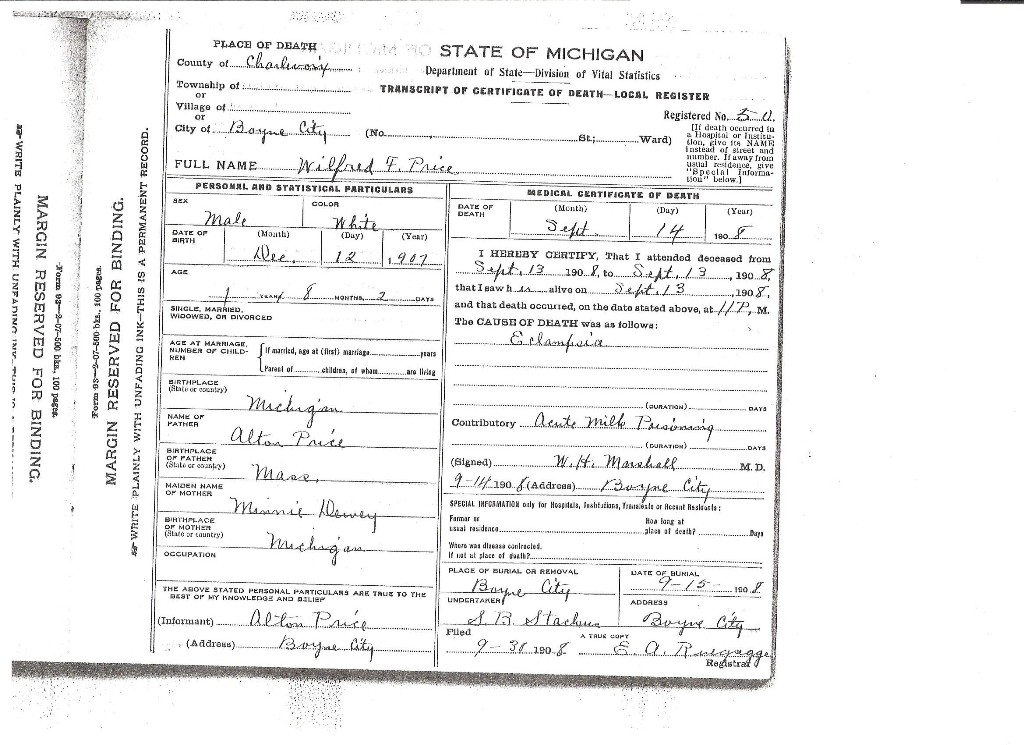 PLACE OF DEATH
County of Charlevoix
Township of
or
Village of
or
City of Boyne City
STATE OF MICHIGAN
Department of State—Division of Vital Statistics
TRANSCRIPT OF CERTIFICATE OF DEATH—LOCAL REGISTER
Registered No. 50
(No. St; Ward)
[If death occurred in
a Hospital or Institu-
tion, give its NAME
instead of street and
number. If away from
usual residence, give
"Special Informa-
tion" below.]
FULL NAME Wilfred F. Price
PERSONAL AND STATISTICAL PARTICULARS
SEX
Male
COLOR
White
DATE OF
BIRTH
(Month) (Day) (Year)
Dec. 12, 1907
AGE
YEARS 8 MONTHS, 2 DAYS
SINGLE, MARRIED,
WIDOWED, OR DIVORCED
AGE AT MARRIAGE,
NUMBER OF CHILD-
REN
If married, age at (first) marriage years
Parent of children, of whom are living
BIRTHPLACE
(State or country)
Michigan
NAME OF
FATHER
Alton Price
BIRTHPLACE
OF FATHER
(State or country)
Mass.
MAIDEN NAME
OF MOTHER
Minnie Dewey
BIRTHPLACE
OF MOTHER
(State or country)
Michigan
OCCUPATION
THE ABOVE STATED PERSONAL PARTICULARS ARE TRUE TO THE
BEST OF MY KNOWLEDGE AND BELIEF
(Informant) Alton Price
(Address) Boyne City
MEDICAL CERTIFICATE OF DEATH
DATE OF
DEATH
(Month) (Day) (Year)
Sept. 14 1908
I HEREBY CERTIFY, That I attended deceased from
Sept. 13 1908, to Sept. 13, 1908,
that I saw h alive on Sept. 13, 1908,
and that death occurred, on the date stated above, at 11 P. M.
The CAUSE OF DEATH was as follows:
Eclampsia
(DURATION) DAYS
Contributory Acute Milk Poisoning
(DURATION) DAYS
(Signed) W. H. Marshall M. D.
9-14 1908 (Address) Boyne City
SPECIAL INFORMATION only for Hospitals, Institutions, Transients or Recent Residents:
Former or
usual residence
How long at
place of death? Days
Where was disease contracted,
If not at place of death?
PLACE OF BURIAL OR REMOVAL
Boyne City
DATE OF BURIAL
9-15- 1908
UNDERTAKER
S. B. Stackus
ADDRESS
Boyne City
Filed
9-30 1908
A TRUE COPY
E. A. Ruegsegge
Registrar
WRITE PLAINLY WITH UNFADING INK—THIS IS A PERMANENT RECORD.
MARGIN RESERVED FOR BINDING.
Form 98—2-07-500 bks., 100 pages.
Form 98—2-07-500 bks., 100 pages.
MARGIN RESERVED FOR BINDING.
WRITE PLAINLY WITH UNFADING INK